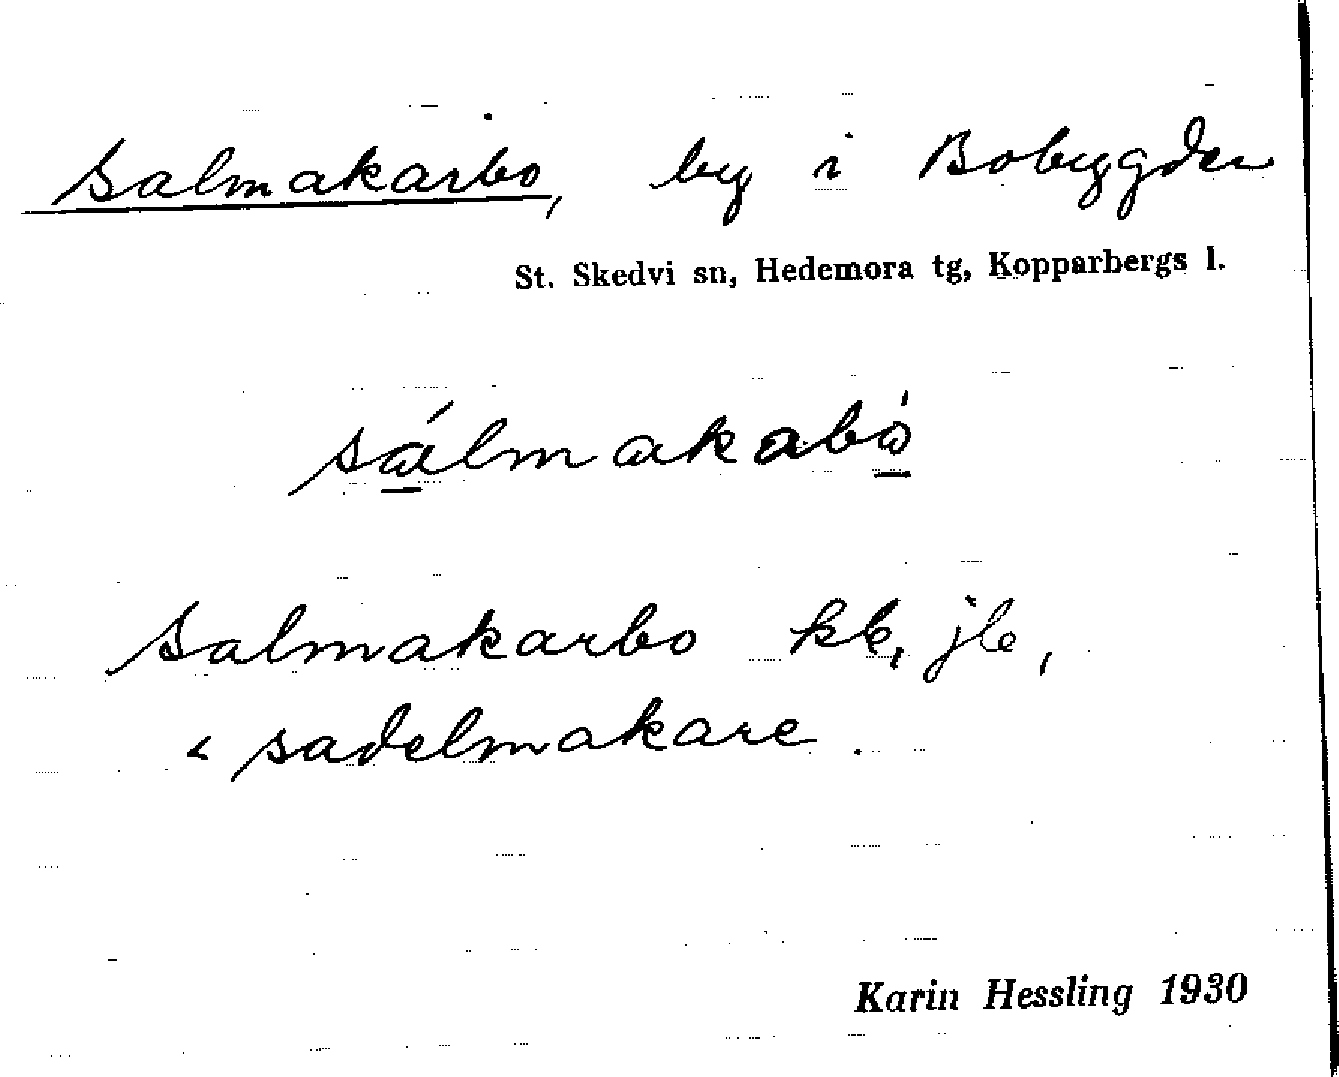 Salmakarbo, by i Bobygden
St. Skedvi sn, Hedemora tg, Kopparbergs l.
sálmakabò
Salmakarbo kb, jb,
< sadelmakare.
Karin Hessling 1930